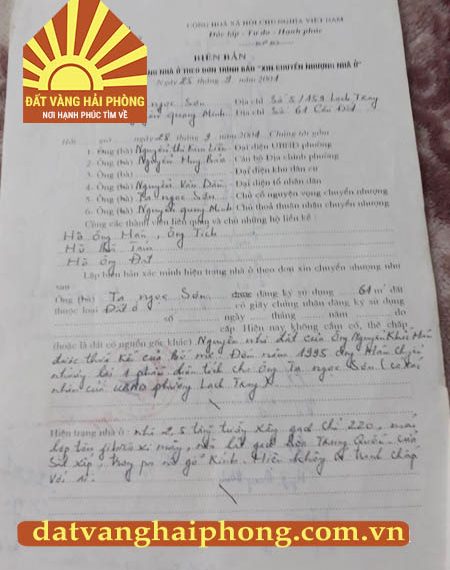 CỘNG HOÀ XÃ HỘI CHỦ NGHĨA VIỆT NAM
Độc lập - Tự do - Hạnh phúc
ĐẤT VÀNG HẢI PHÒNG
NƠI HẠNH PHÚC TÌM VỀ
BIÊN BẢN
NG NHÀ Ở THEO ĐƠN TRÌNH BÁN "XIN CHUYỂN NHƯỢNG NHÀ Ở"
Ngày 28 tháng 9 năm 2001
ngọc Sơn Địa chỉ Số 5/159 Lạch Tray
quang Minh Địa chỉ Số 61 Cầu Đất
Hồi giờ ngày 28 tháng 9 năm 2001 Chúng tôi gồm
1. Ông (bà) Nguyễn thị Kim Liên Đại diện UBND phường
2. Ông (bà) Nguyễn Huy Cán bộ Địa chính phường
3. Ông (bà) Đại diện khu dân cư
4. Ông (bà) Nguyễn Văn Dân Đại diện tổ nhân dân
5. Ông (bà) Tạ ngọc Sơn Chủ có nguyện vọng chuyển nhượng
6. Ông (bà) Nguyễn quang Minh Chủ thoả thuận nhận chuyển nhượng
Cùng các thành viên láng quanh và chủ những hộ liền kề
Hộ ông Hán, ông Tích
Hộ Bà Tam
Hộ ông Đạt
Lập biên bản xác minh hiện trạng nhà ở theo đơn xin chuyển nhượng như
sau
Ông (bà) Tạ ngọc Sơn được đăng ký sử dụng 61 m² đất
thuộc loại Đất ở có giấy chứng nhận đăng ký sử dụng
số ngày tháng năm do
cấp. Hiện nay không cầm cố, thế chấp
(hoặc là đất có nguồn gốc khác) Nguyên nhà đất của ông Nguyễn Khắc Hán
được thừa kế của bố mẹ. Đến năm 1995 ông Hán chuyển
nhượng lại 1 phần diện tích cho ông Tạ ngọc Sơn. (có xác
nhận của UBND phường Lạch Tray)
Hiện trạng nhà ở: nhà 2,5 tầng tường xây gạch chỉ 220, mái
lợp tôn fibrô xi măng, nền lát gạch hoa Trung Quốc. Cửa
gỗ Kính. Hiện không có tranh chấp
với ai.
datvanghaiphong.com.vn